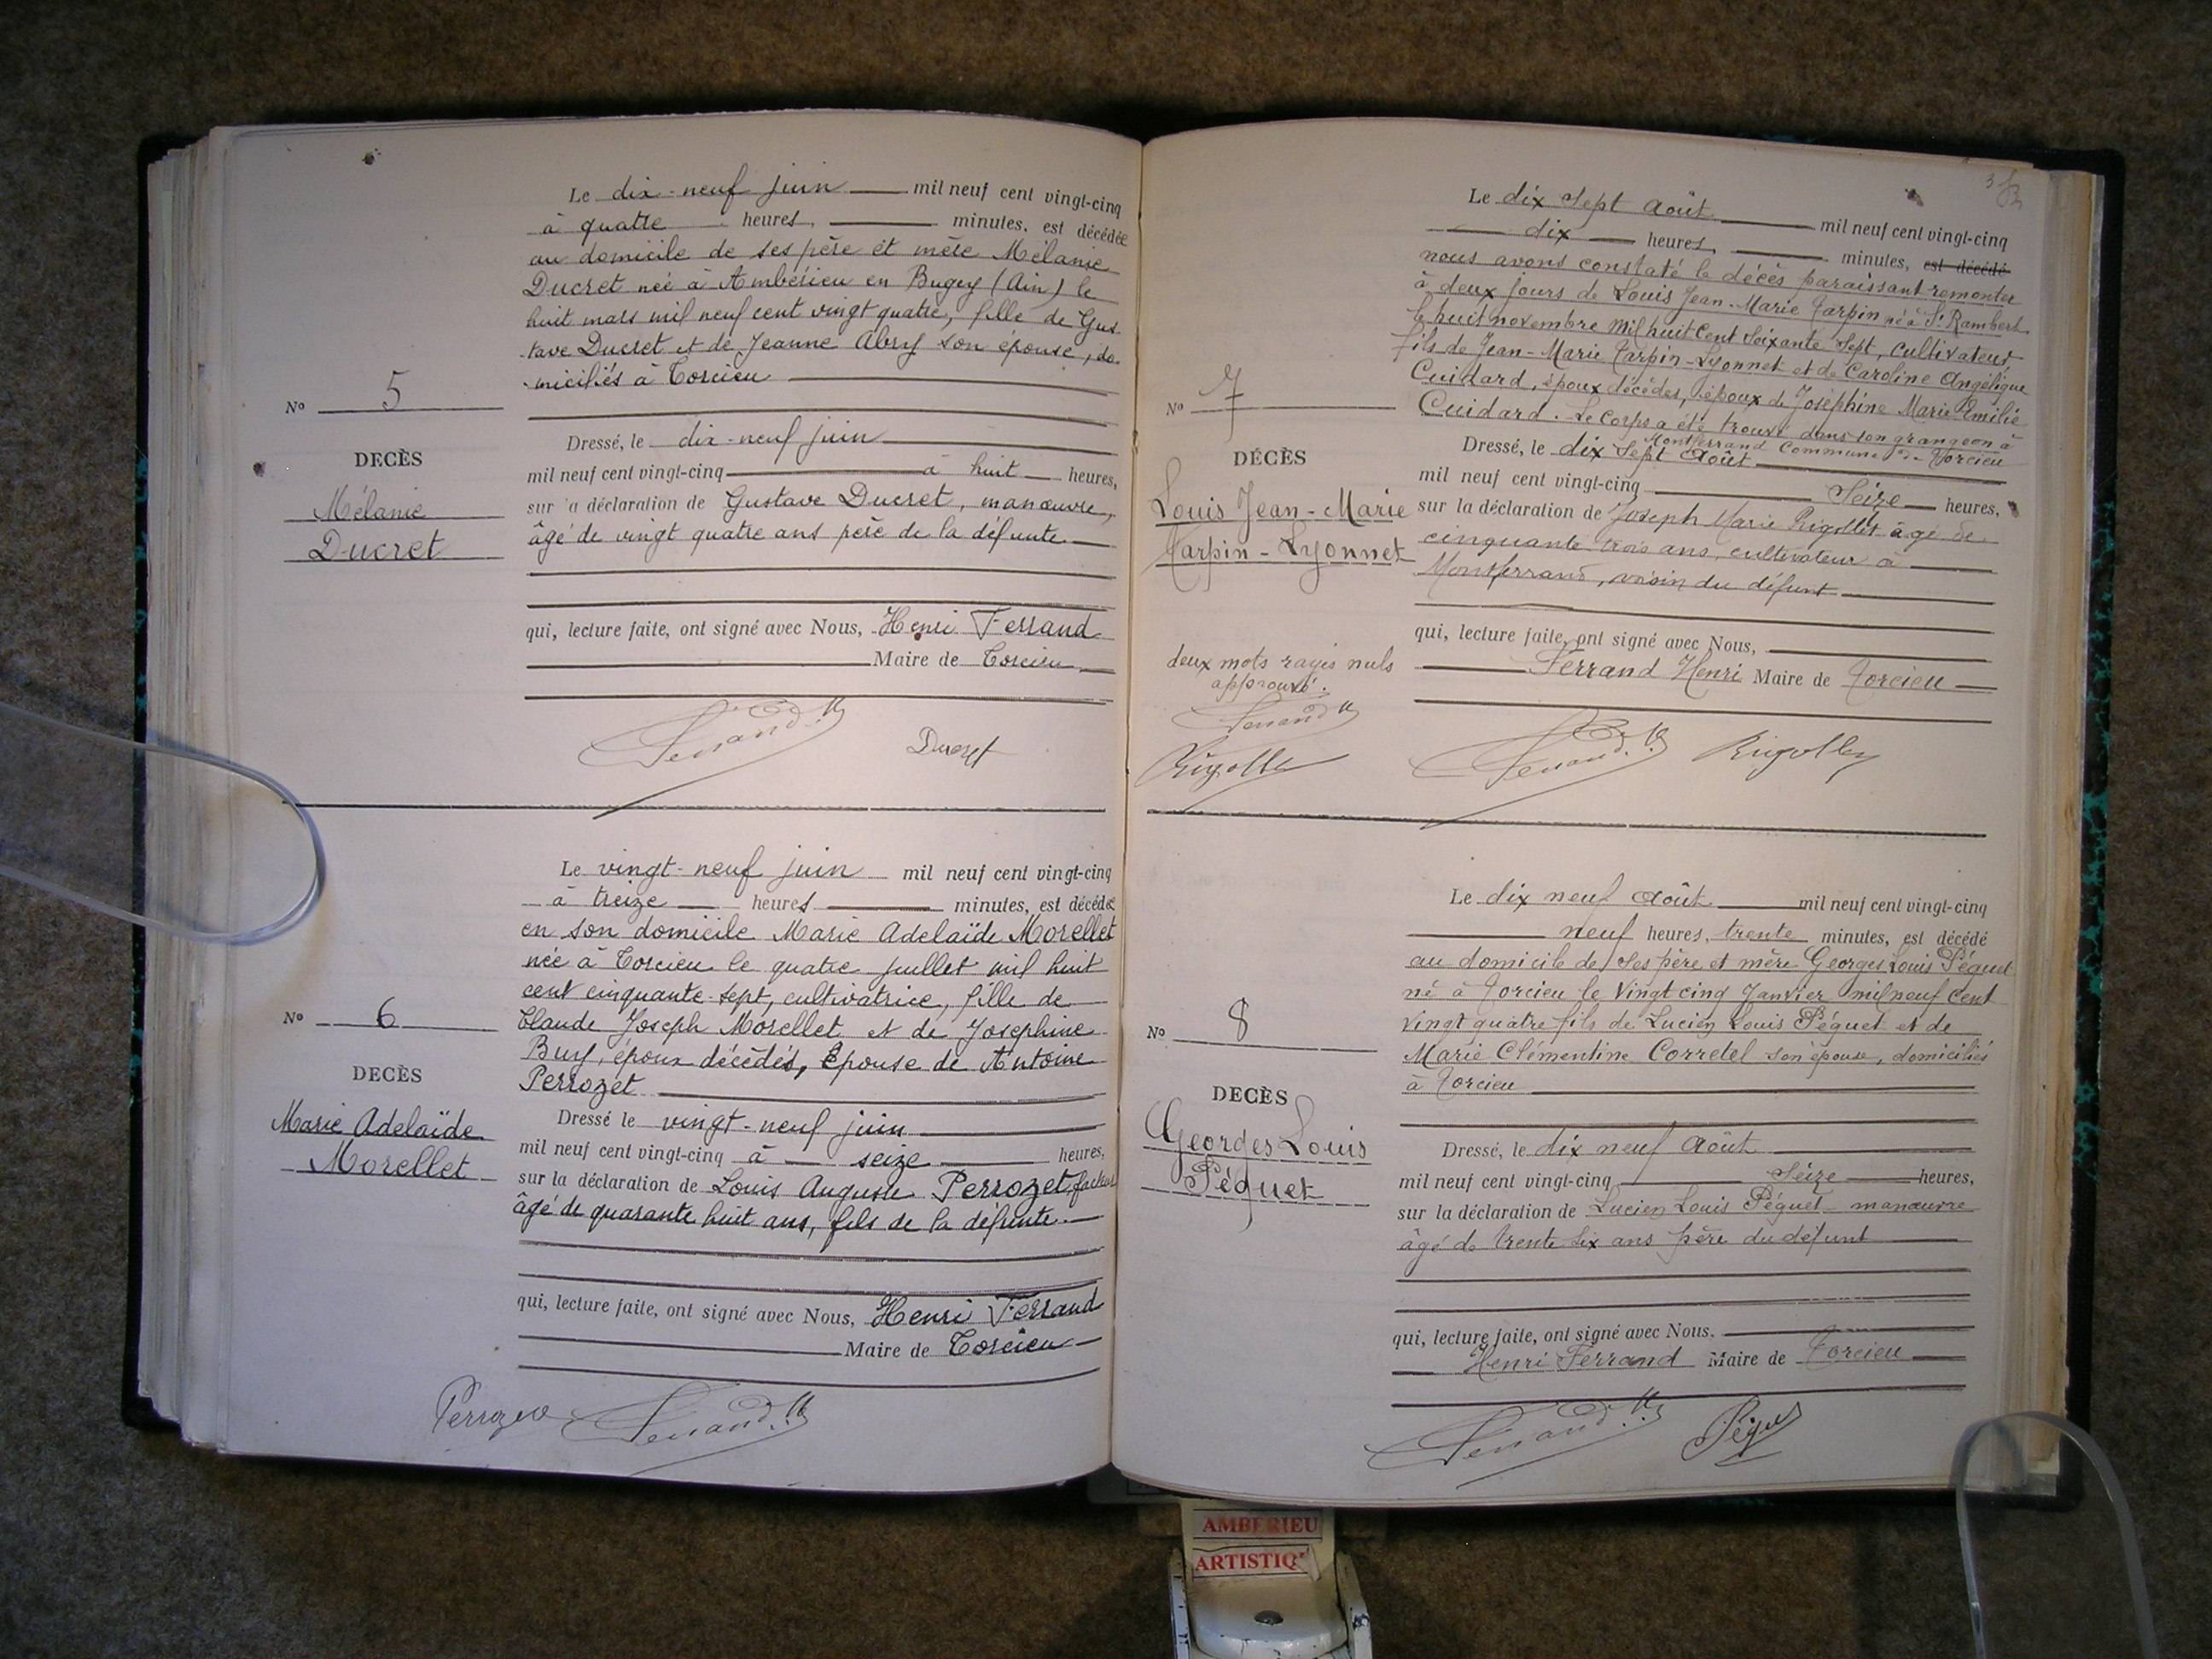 Le dix-neuf juin mil neuf cent vingt-cinq
à quatre heures, minutes, est décédée
au domicile de ses père et mère Mélanie
Ducret née à Ambérieu en Bugey (Ain) le
huit mars mil neuf cent vingt quatre, fille de Gus
tave Ducret et de Jeanne Abry son épouse, do-
miciliés à Torcieu
No 5
DECÈS
Mélanie
Ducret
Dressé, le dix-neuf juin
mil neuf cent vingt-cinq à huit heures,
sur la déclaration de Gustave Ducret, manœuvre,
âgé de vingt quatre ans père de la défunte
qui, lecture faite, ont signé avec Nous, Henri Ferrand
Maire de Torcieu
Ferrand Ducret
Le vingt-neuf juin mil neuf cent vingt-cinq
à treize heures minutes, est décédée
en son domicile Marie Adelaïde Morellet
née à Torcieu le quatre juillet mil huit
cent cinquante-sept, cultivatrice, fille de
Claude Joseph Morellet et de Josephine
Buy, époux décédés, Epouse de Antoine
Perrozet
No 6
DECÈS
Marie Adelaïde
Morellet
Dressé le vingt-neuf juin
mil neuf cent vingt-cinq à seize heures,
sur la déclaration de Louis Auguste Perrozet, facteur
âgé de quarante huit ans, fils de la défunte.
qui, lecture faite, ont signé avec Nous, Henri Ferrand
Maire de Torcieu
Perrozet Ferrand
Le dix sept août mil neuf cent vingt-cinq
dix heures, minutes, est décédé
nous avons constaté le décès paraissant remonter
à deux jours de Louis Jean-Marie Tarpin né à St Rambert
le huit novembre mil huit cent soixante sept, cultivateur
fils de Jean-Marie Tarpin-Lyonnet et de Caroline Angélique
Cuidard, époux décédés, époux de Joséphine Marie Emilie
Cuidard. Le corps a été trouvé dans son grangeon à
Montferrand Commune de Torcieu
No 7
DÉCÈS
Louis Jean-Marie
Tarpin-Lyonnet
Dressé, le dix sept Août
mil neuf cent vingt-cinq Seize heures,
sur la déclaration de Joseph Marie Rigollet âgé de
cinquante trois ans, cultivateur à
Montferrand, voisin du défunt
qui, lecture faite, ont signé avec Nous,
Ferrand Henri Maire de Torcieu
deux mots rayés nuls
approuvé.
Ferrand
Rigollet
Ferrand Rigollet
Le dix neuf Août mil neuf cent vingt-cinq
neuf heures, trente minutes, est décédé
au domicile de ses père et mère Georges Louis Péguet
né à Torcieu le Vingt cinq Janvier mil neuf cent
vingt quatre fils de Lucien Louis Péguet et de
Marie Clémentine Corretel son épouse, domiciliés
à Torcieu
No 8
DECÈS
Georges Louis
Péguet
Dressé, le dix neuf Août
mil neuf cent vingt-cinq Seize heures,
sur la déclaration de Lucien Louis Péguet manœuvre
âgé de trente six ans père du défunt
qui, lecture faite, ont signé avec Nous.
Henri Ferrand Maire de Torcieu
Ferrand Péguet
AMBERIEU
ARTISTIQ